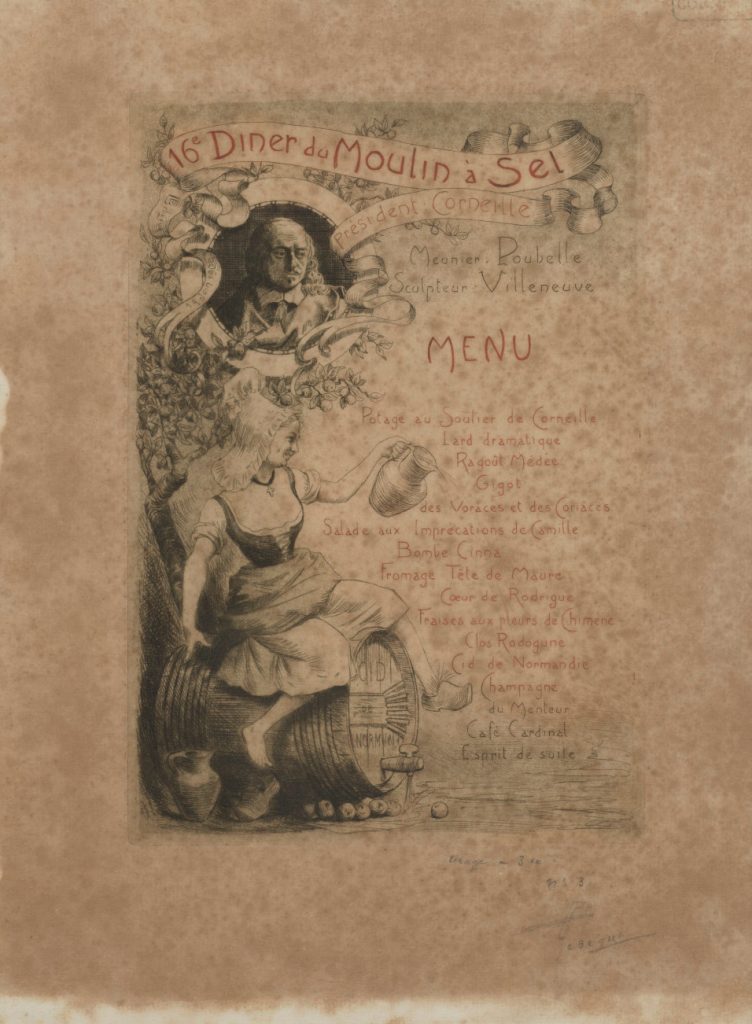 16e Diner du Moulin à Sel
Président. Corneille
Meunier. Poubelle
Sculpteur. Villeneuve
MENU
Potage au Soulier de Corneille
Lard dramatique
Ragoût Médée
Gigot
des Voraces et des Coriaces
Salade aux Imprécations de Camille
Bombe Cinna
Fromage Tête de Maure
Cœur de Rodrigue
Fraises aux pleurs de Chimène
Clos Rodogune
Cid de Normandie
Champagne
du Menteur
Café Cardinal
Esprit de suite
CID
DE
NORMAN
N° 3